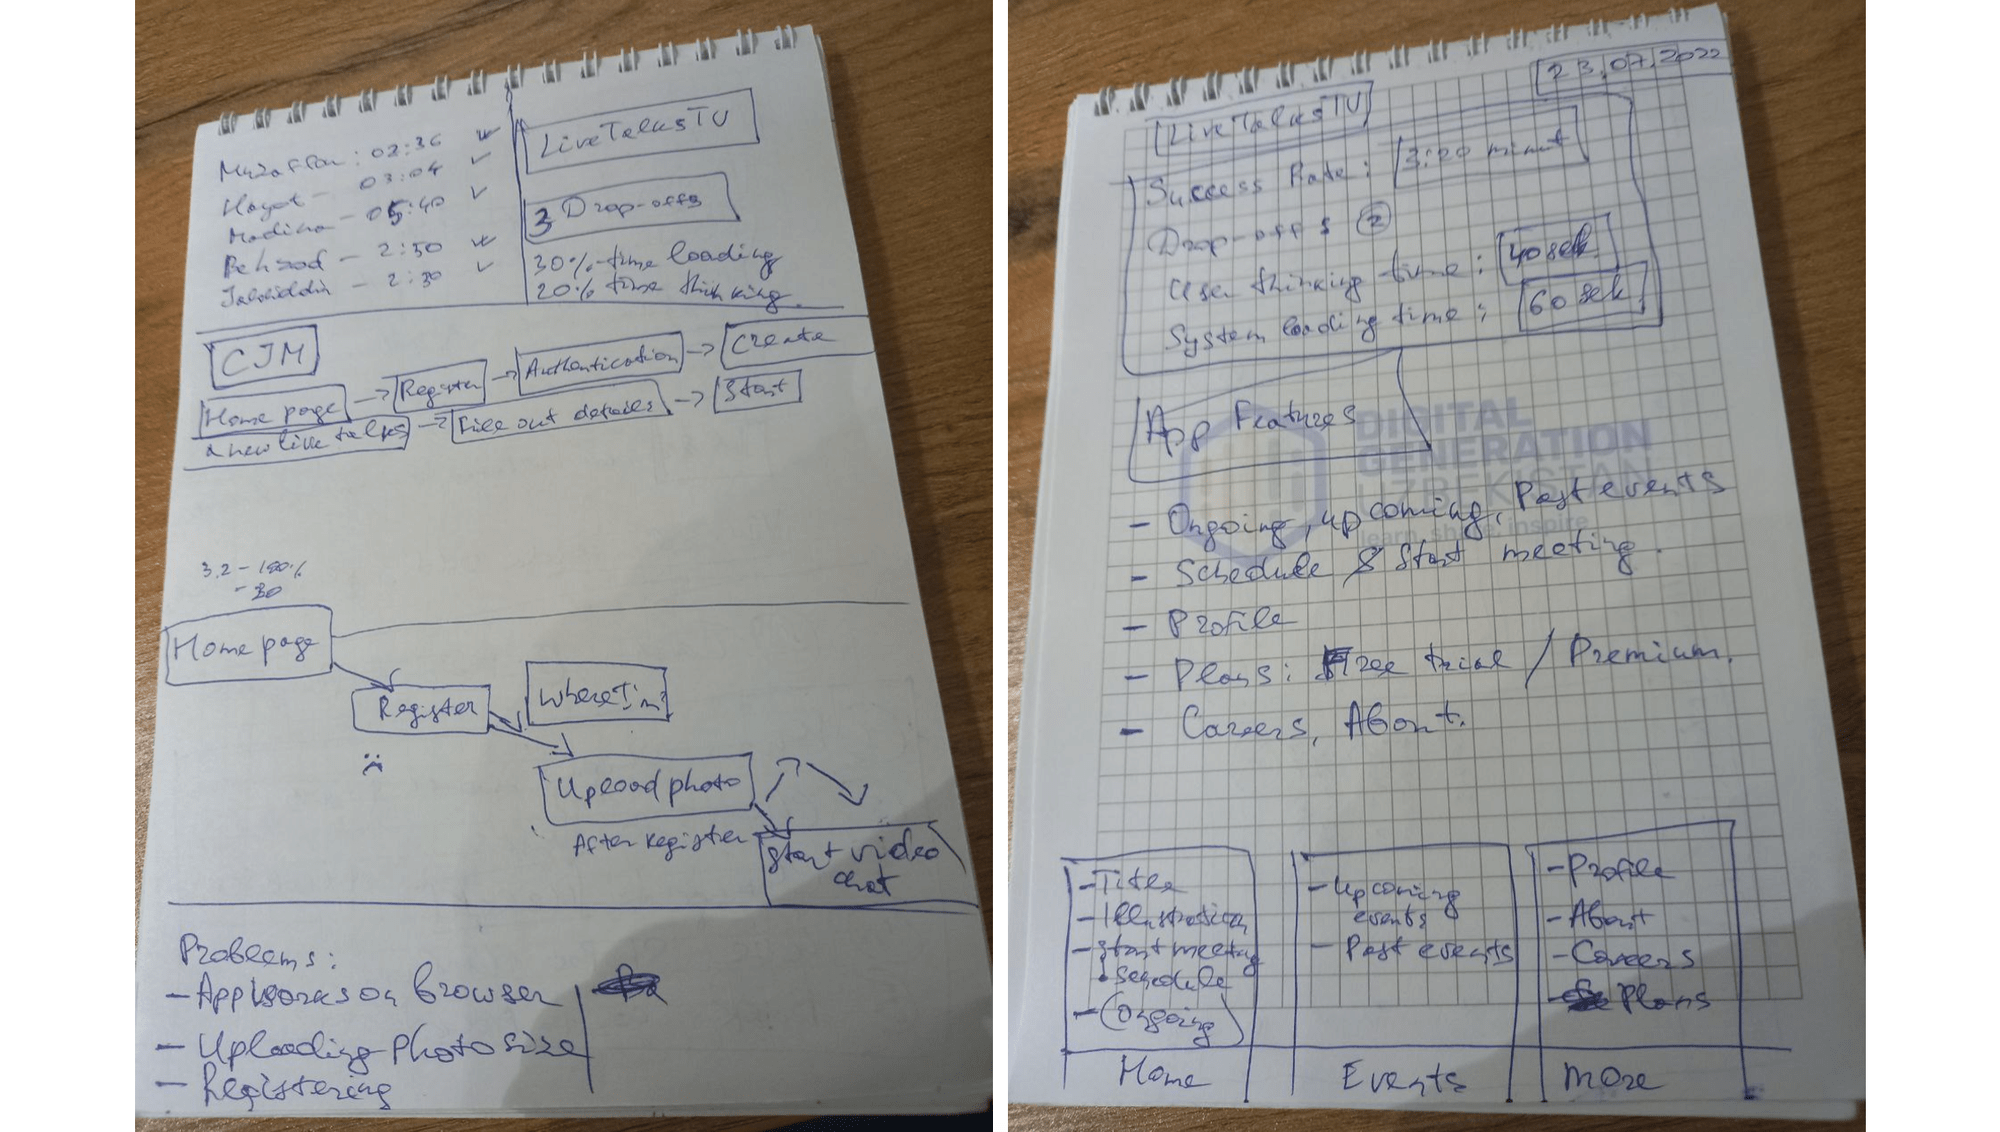 Muzaffar: 02:36
Hayot - 03:04
Madina - 05:40
Behzod - 2:50
Jaloliddin - 2:30
LiveTalksTV
3 Drop-offs
30% time loading
20% time thinking
CJM
Home page → Register → Authentication → Create
a new live talks → Fill out details → Start
3.2 - 100%
- 30
Home page
Register
Where I'm?
Upload photo
After register
Start video
chat
Problems:
- App works on browser
- Uploading photo size
- Registering
23.07.2022
LiveTalksTV
Success Rate: 3:20 minut
Drop-offs 2
User thinking time: 40 sek
System loading time: 60 sek
App Features
DIGITAL
GENERATION
UZBEKISTAN
learn, share, inspire
- Ongoing, upcoming, Past events
- Schedule & Start meeting.
- Profile
- Plans: Free trial / Premium.
- Careers, About.
- Title
- Illustration
- Start meeting
• Schedule
- Ongoing
Home
- Upcoming
events
- Past events
Events
- Profile
- About
- Careers
- Plans
more